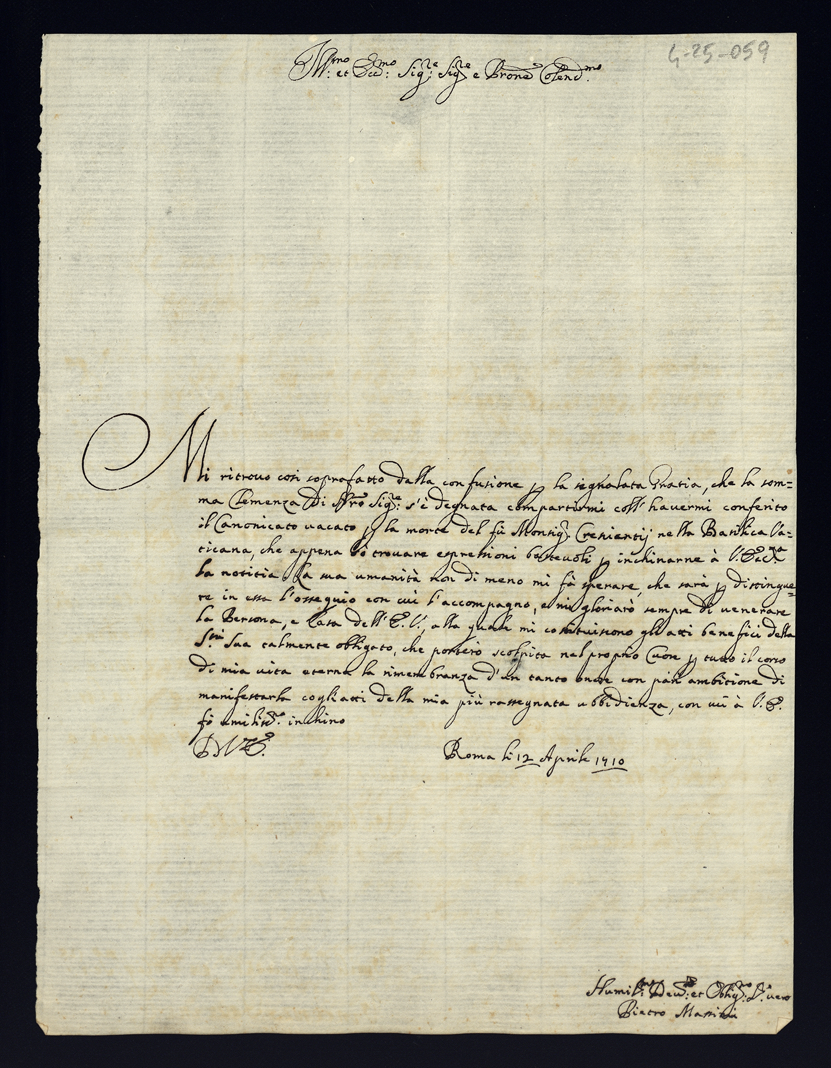 4-25-059
Ill:mo et Ecc:mo Sig:re Sig:re e Prone Colend:mo
Mi ritrovo così soprafatto dalla confusione p la segnalata Gratia, che la som=
ma Clemenza di Nro Sig:re s'è degnata compartirmi coll'havermi conferito
il Canonicato vacato p la morte del fù Monsig:r Crescentij nella Basilica Va=
ticana, che appena sò trovare espressioni bastevoli p inchinarne à V. Ecc.za
la notitia. La sua umanità non di meno mi fà sperare, che sarà p distingue=
re in essa l'ossequio con cui l'accompagno, e mi gloriarò sempre di venerare
la Persona, e Casa dell'E.V., alla quale mi costituiscono gli atti benefici della
Stà Sua talmente obligato, che porterò scolpita nel proprio Cuore p tutto il corso
di mia vita eterna la rimembranza d'un tanto onore con pari ambitione di
manifestarla cogli atti della mia più rassegnata ubbidienza, con cui à V.E.
fò umiliss:o inchino
D V E.
Roma li 12 Aprile 1710
Humil:mo Dev:mo et Oblig:mo S.e vero
Pietro Massimi